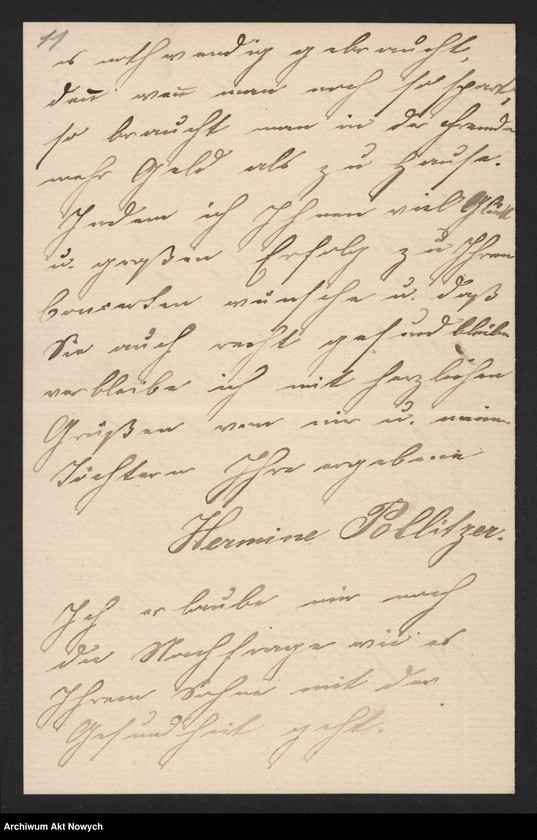 11
es nothwendig gebraucht,
den̄ wen̄ man noch so spart,
so braucht man in der Fremde
mehr Geld als zu Hause.
Indem ich Ihnen viel Glück
u. großen Erfolg zu Ihren
Concerten wünsche u. daß
Sie auch recht gesund bleiben
verbleibe ich mit herzlichen
Grüßen von mir u. meinen
Töchtern Ihre ergebene
Hermine Pollitzer.
Ich erlaube mir noch
die Nachfrage wie es
Ihrem Sohne mit der
Gesundheit geht.
Archiwum Akt Nowych